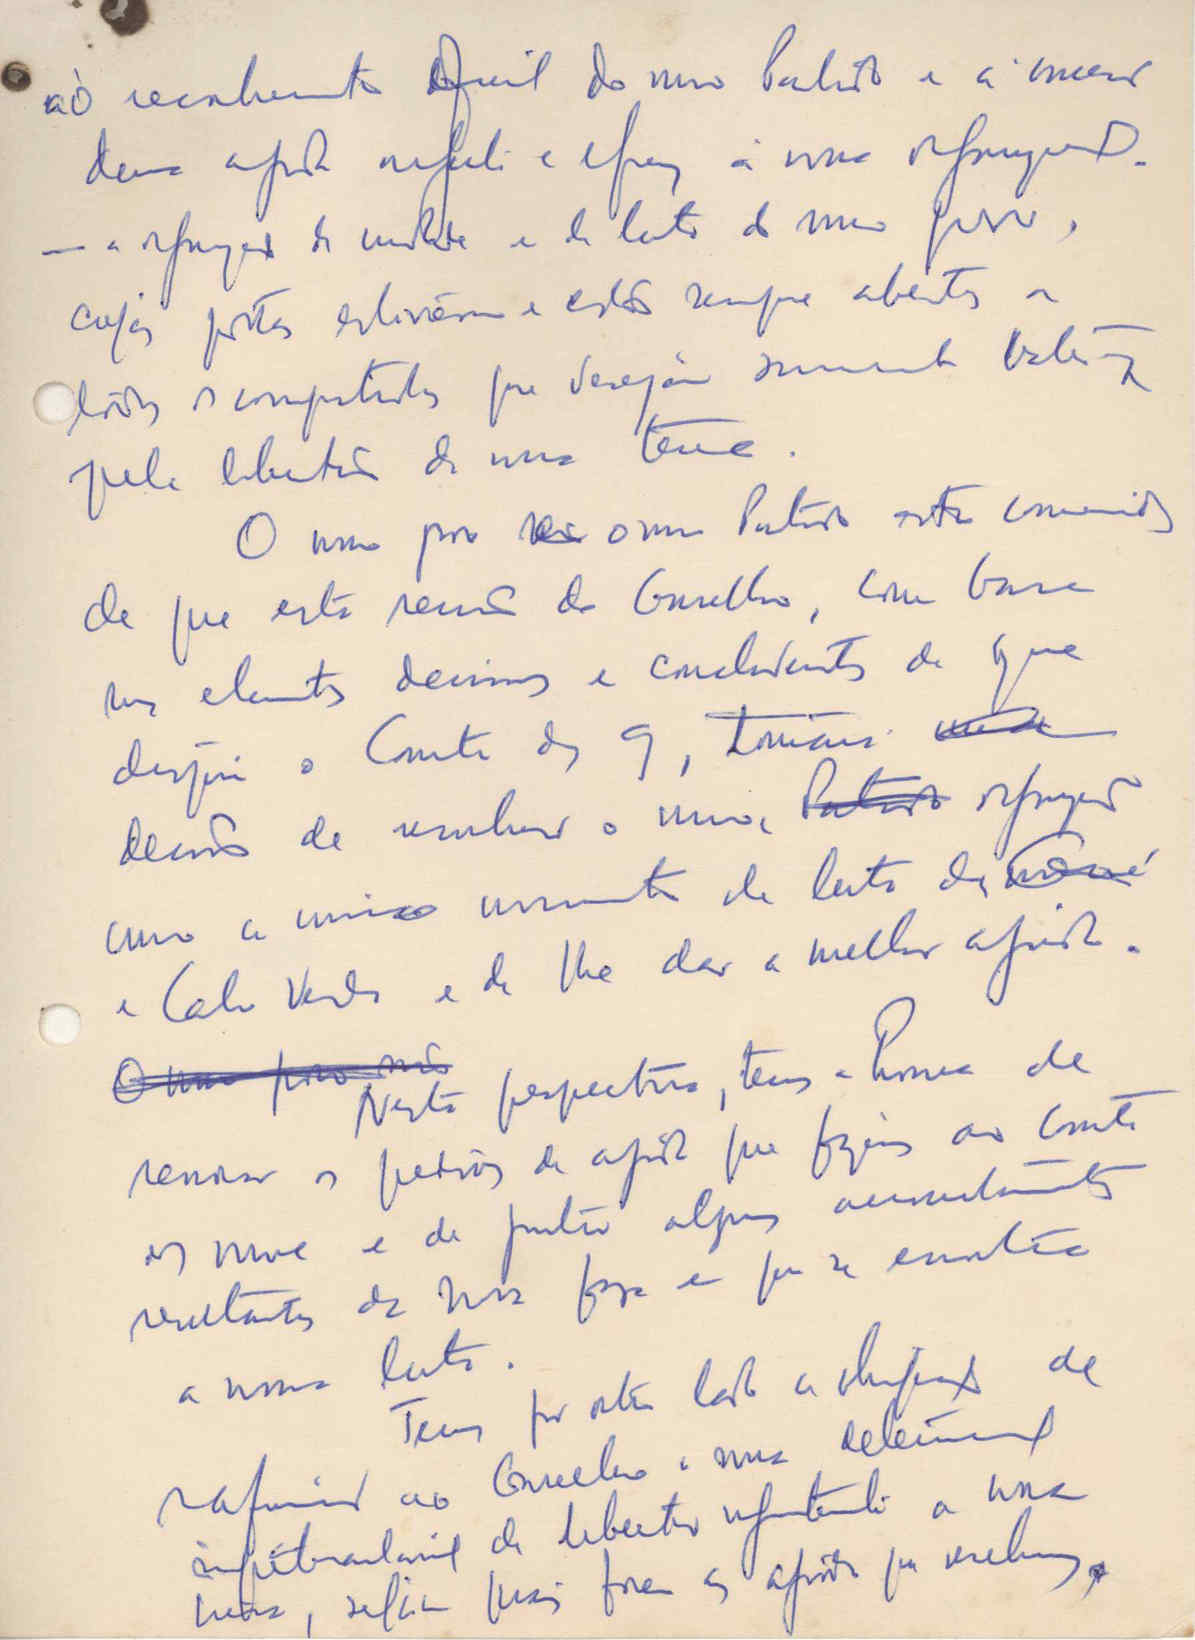 ao reconhecimento oficial do nosso Partido e à
dum apoio e eficaz à nossa organização.
— a organização de unidade e de luta do nosso povo,
cujas portas estiveram e estão sempre abertas a
todos os compatriotas que desejam seriamente
pela libertação da nossa terra.
O nosso povo e o nosso Partido estão convencidos
de que esta reunião do Conselho, com base
nos elementos decisivos e concludentes de que
dispõe o Comité dos 9, tomará
decisão de reconhecer a nossa Partido organização
como o único movimento de luta da Guiné
e Cabo Verde e de lhe dar o melhor apoio.
O nosso povo não
Nesta perspectiva, temos a honra de
renovar os pedidos de apoio que fizemos ao Comité
dos nove e de juntar alguns
resultantes da nova fase em que se encontra
a nossa luta.
Temos por outro lado a obrigação de
reafirmar ao Conselho a nossa determinação
de libertar a nossa
terra, sejam quais forem os apoios que recebamos.